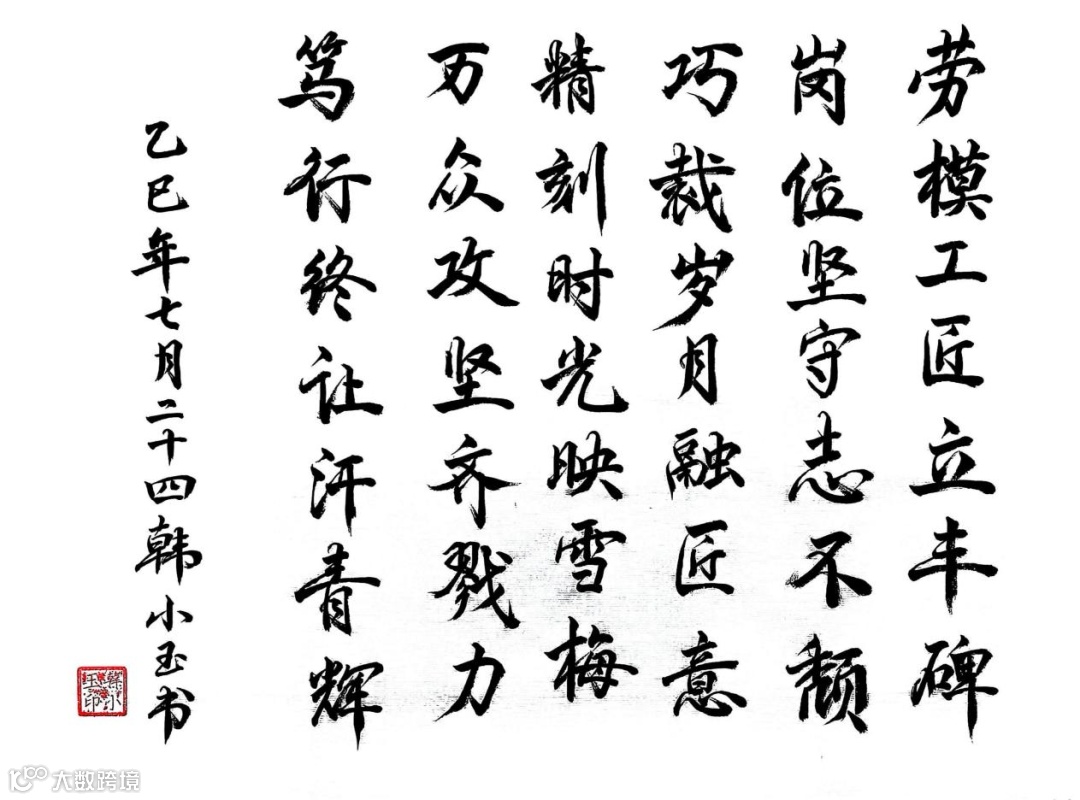 劳模工匠立丰碑
岗位坚守志不颓
巧裁岁月融匠意
精刻时光映雪梅
万众攻坚齐戮力
笃行终让汗青辉
乙巳年七月二十四韩小玉书
韩小玉印
大数跨境